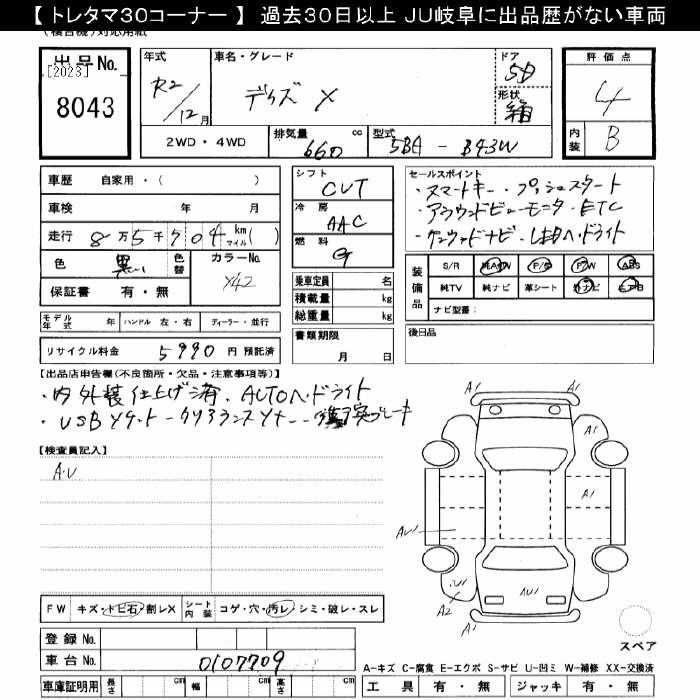 【 トレタマ30コーナー 】 過去30日以上 JU岐阜に出品歴がない車両
出品No. 年式 車名・グレード ドア 評価点
[2023] R2 デイズ X 5D 4
8043 12月 形状 箱
2WD・4WD 排気量 660 cc 型式 5BA - B43W 内装 B
車歴 自家用・( ) シフト CVT セールスポイント
・スマートキー・プッシュスタート
車検 年 月 冷房 AAC ・アラウンドビューモニタ・ETC
走行 8万5千704 km マイル ( ) 燃料 G ・ケンウッドナビ・LEDヘッドライト
色 黒 色替 カラーNo. Y42
保証書 有・無 乗車定員 名 装備品 S/R 純A/W P/S P/W ABS
積載量 kg 純TV 純ナビ 革シート 外ナビ エアB
モデル年式 年 ハンドル 左・右 ディーラー・並行 総重量 kg ナビ型番:
リサイクル料金 5990 円 預託済 書類期限 月 日 後日品
【出品店申告欄(不良箇所・欠品・注意事項等)】
・内外装仕上げ済・AUTOヘッドライト
・USBソケット
【検査員記入】
A・U
A1 A1
A1 A1
AU1
U1 AU1
A2 A1
FW キズ・トビ石・割レX シート内装 コゲ・穴・汚レ・シミ・破レ・スレ
登録No.
スペア
車台No. 0107709
A-キズ C-腐食 E-エクボ S-サビ U-凹ミ W-補修 XX-交換済
車庫証明用 長さ cm 幅 cm 高さ cm 工具 有・無 ジャッキ 有・無